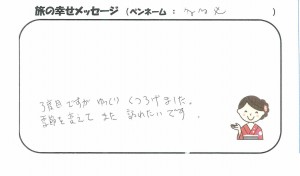 旅の幸せメッセージ (ペンネーム : )
3度目ですが ゆっくり くつろげました。
季節を変えて また 訪れたいです。